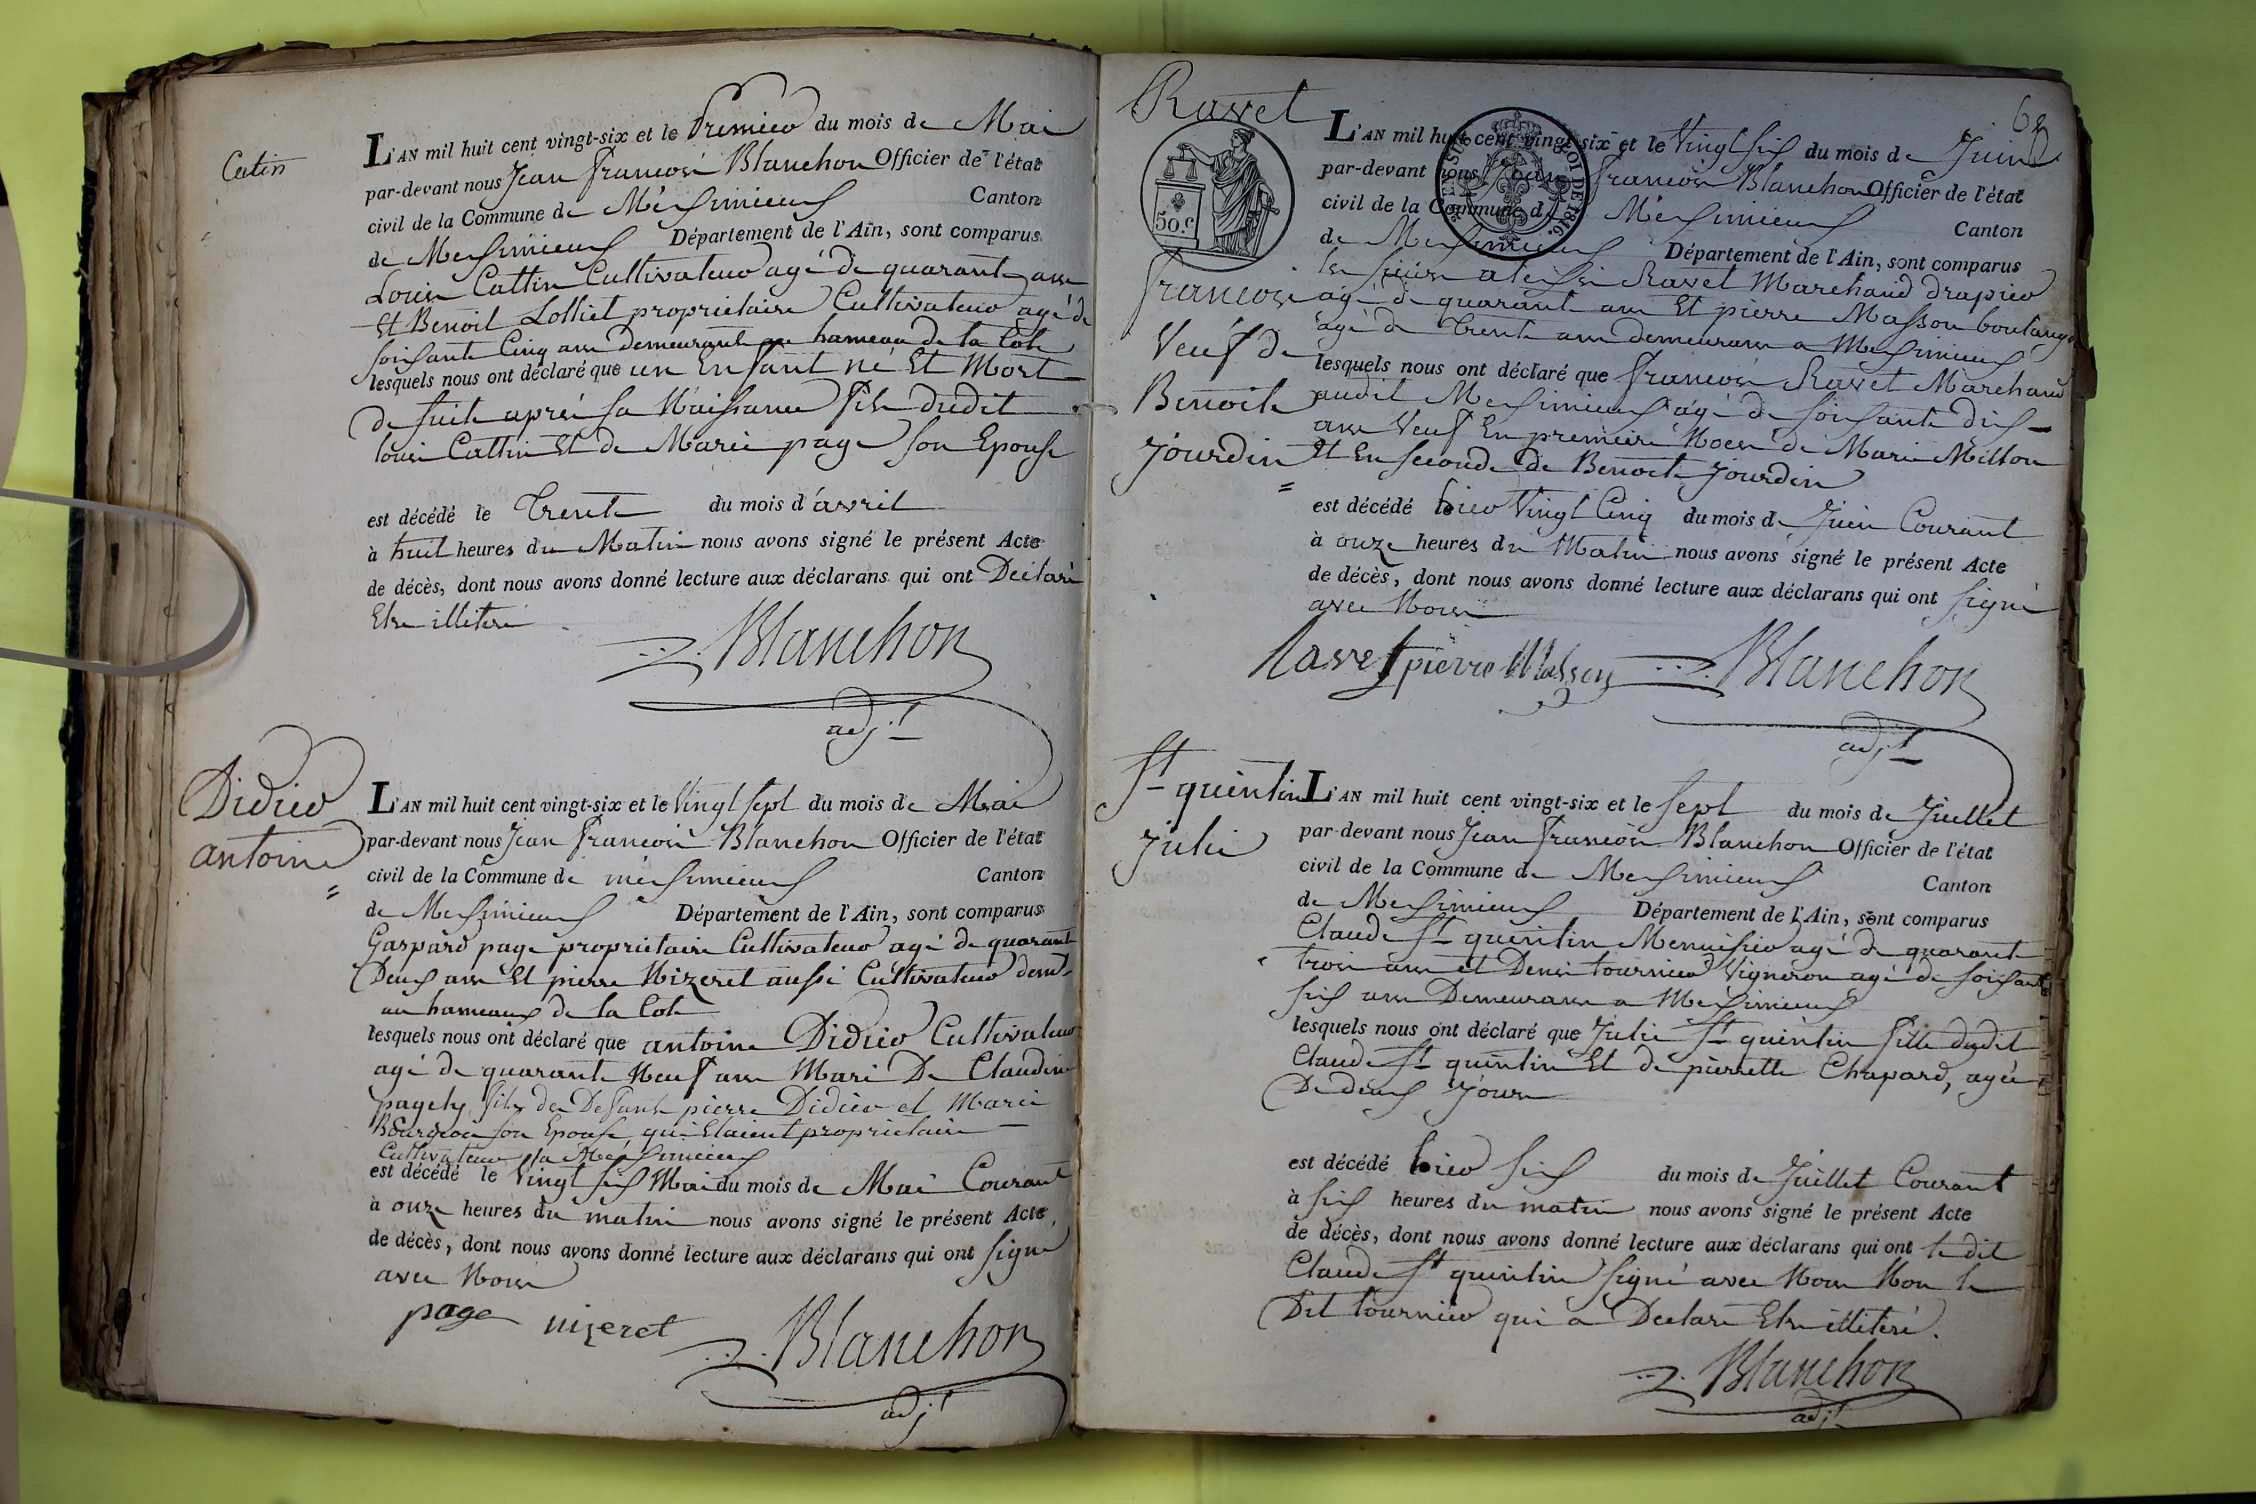 Catin
L'AN mil huit cent vingt-six et le Premier du mois de Mai
par-devant nous Jean François Blanchon Officier de l'état
civil de la Commune de Méssimieux Canton
de Messimieux Département de l'Ain, sont comparus
Louis Cattin Cultivateur agé de quarante ans
Et Benoit Lolliet propriétaire Cultivateur agé de
soissante Cinq ans demeurant au hameau de la Cote
lesquels nous ont déclaré que un Enfant né Et Mort
de suite aprés sa Naissance fils dudit
louis Cattin Et de Marie page son Epouse
est décédé le Trente du mois d'avril
à huit heures du Matin nous avons signé le présent Acte
de décès, dont nous avons donné lecture aux déclarans qui ont Déclaré
Etre illiteré
Blanchon
adjt
Didier
antoine
L'AN mil huit cent vingt-six et le Vingt sept du mois de Mai
par-devant nous Jean François Blanchon Officier de l'état
civil de la Commune de méssimieux Canton
de Messimieux Département de l'Ain, sont comparus
Gaspard page propriétaire Cultivateur agé de quarante
Deux ans Et pierre Nizeret aussi Cultivateur demt
au hameaux de la Cote
lesquels nous ont déclaré que antoine Didier Cultivateur
agé de quarante Neuf ans Mari De Claudine
pagely fils de Defunt pierre Didier et Marie
Bourgeois son Epouse qui Etaient propriétaire
Cultivateur à Méssimieux
est décédé le Vingt six Mai du mois de Mai Courant
à onze heures du matin nous avons signé le présent Acte
de décès, dont nous avons donné lecture aux déclarans qui ont signé
avec Nous
page nizeret Blanchon
adjt
62
Ravet
50 c.
ROI DE 1816.
L'AN mil huit cent vingt-six et le Vingt six du mois de Juin
par-devant nous Jean François Blanchon Officier de l'état
civil de la Commune de Méssimieux Canton
de Messimieux Département de l'Ain, sont comparus
les sieurs alexis Ravet Marchand drapier
François
agé de quarante ans Et pierre Masson boulanger
agé de Trente ans demeurans a Messimieux
Veuf de
lesquels nous ont déclaré que François Ravet Marchand
Benoite
audit Messimieux agé de soissante dix
ans Veuf En premiere Noces de Marie Milton
Jourdin
Et En seconde de Benoite Jourdin
est décédé hier Vingt Cinq du mois de Juin Courant
à onze heures du Matin nous avons signé le présent Acte
de décès, dont nous avons donné lecture aux déclarans qui ont signé
avec Nous
Ravet pierre Masson Blanchon
adjt
St quintin
Julie
L'AN mil huit cent vingt-six et le sept du mois de Juillet
par-devant nous Jean François Blanchon Officier de l'état
civil de la Commune de Messimieux Canton
de Messimieux Département de l'Ain, sont comparus
Claude St quintin Menuisier agé de quarante
trois ans et Denis tournier Vigneron agé de soissante
six ans Demeurans a Messimieux
lesquels nous ont déclaré que Julie St quintin fille dudit
Claude St quintin Et de pierrette Chapard, agée
De deux Jours
est décédé hier six du mois de Juillet Courant
à six heures du matin nous avons signé le présent Acte
de décès, dont nous avons donné lecture aux déclarans qui ont le dit
Claude St quintin signé avec Nous Non le
Dit tournier qui a Declaré Etre illiteré.
Blanchon
adjt